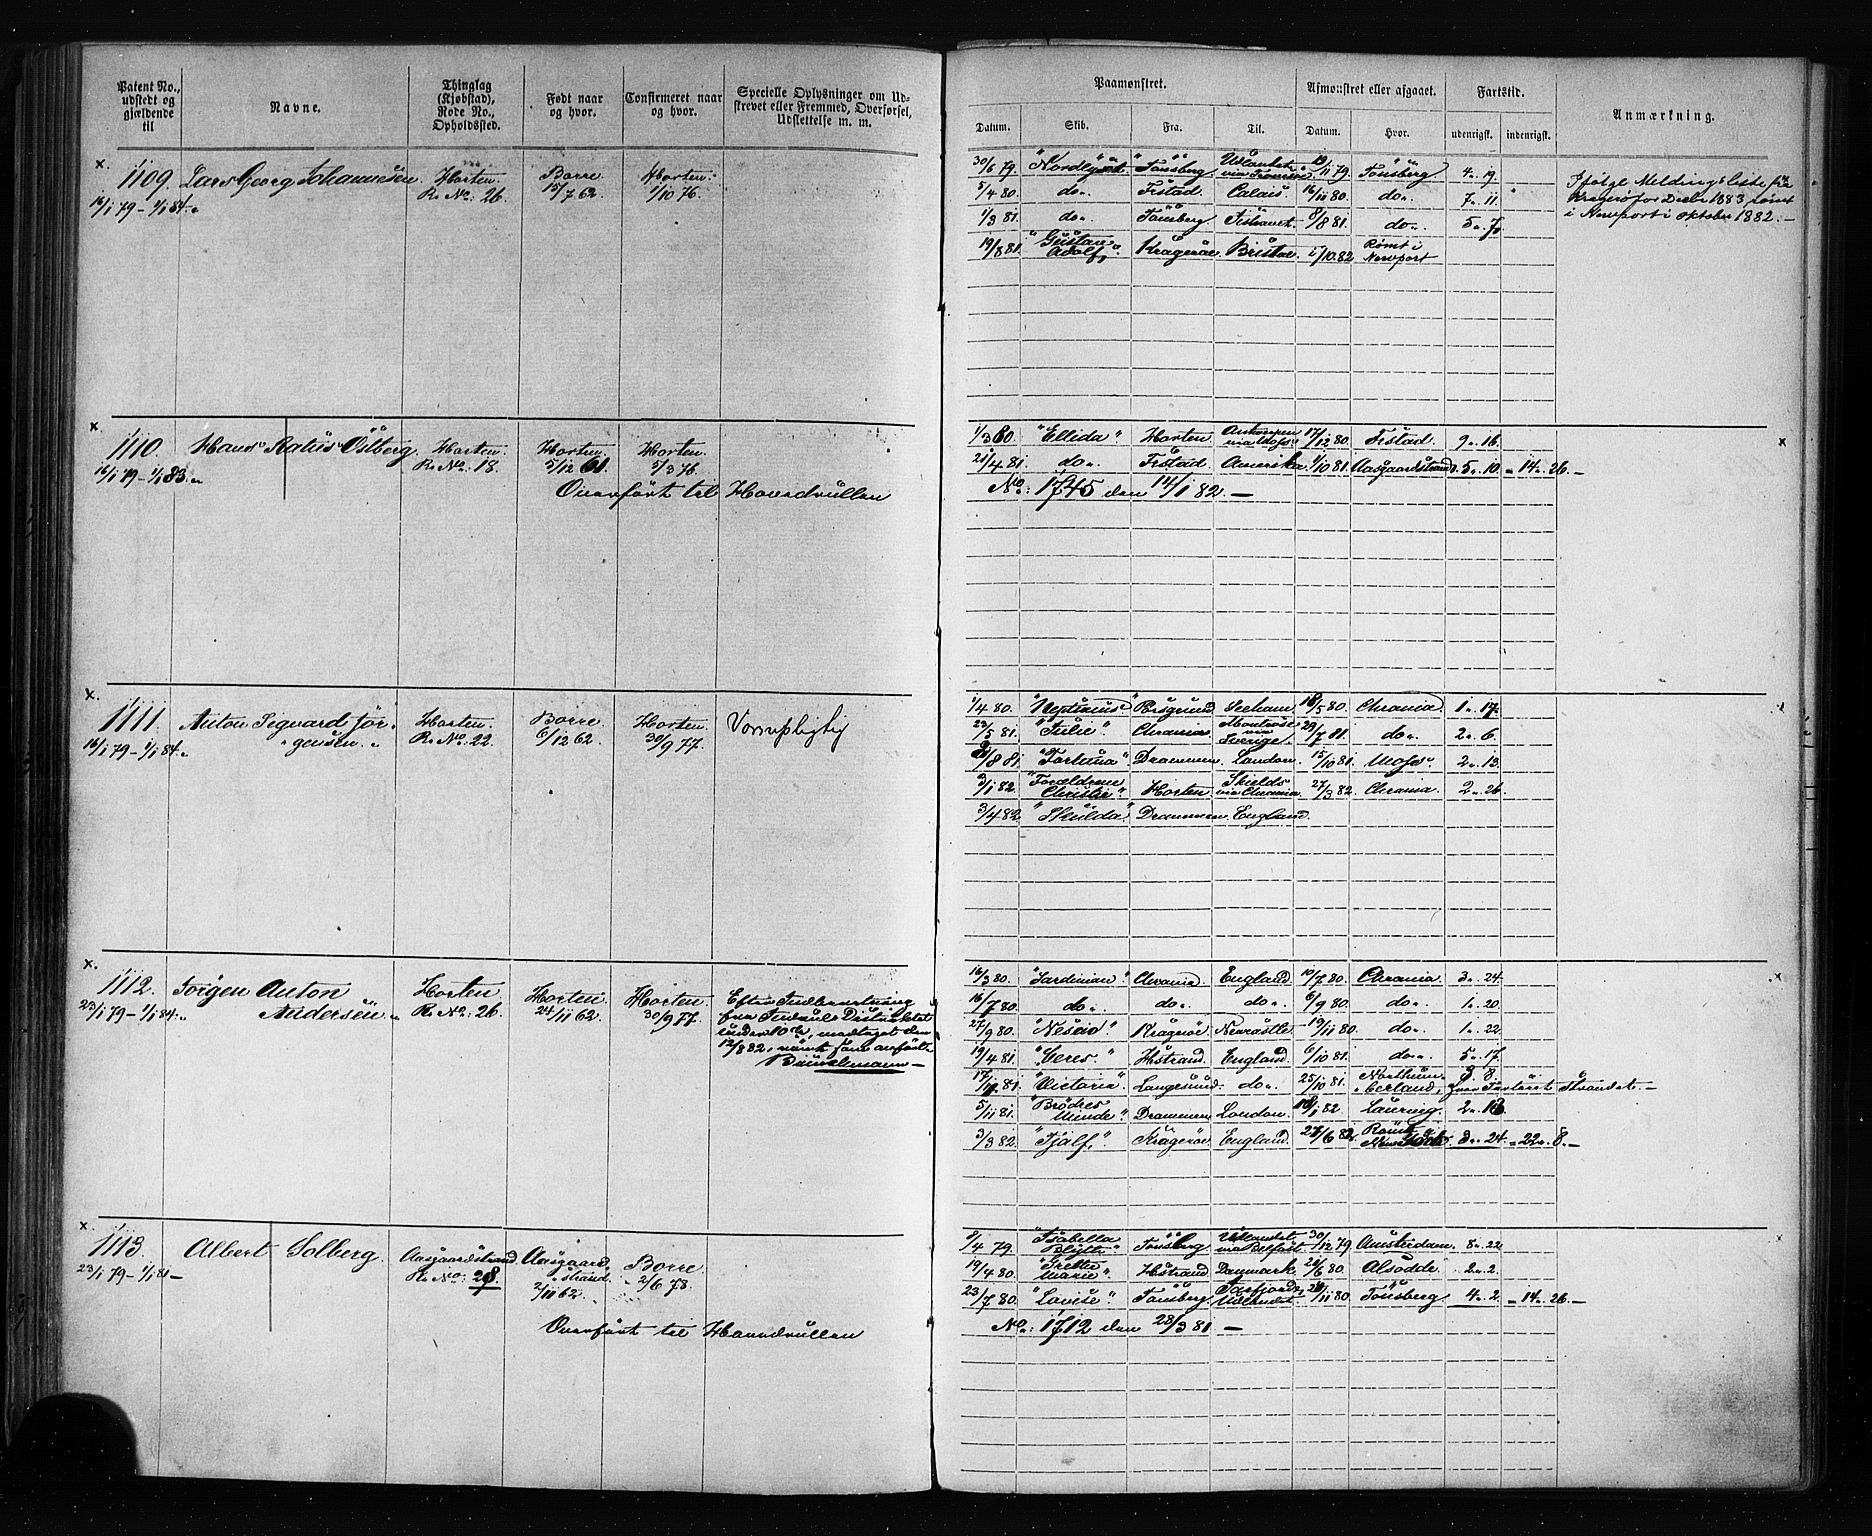 Patent No., udstedt og gjældende til
Navne.
Thinglag (Kjøbstad), Rode No., Opholdssted.
Født naar og hvor.
Confirmeret naar og hvor.
Specielle Oplysninger om Udstrevet eller Fremmed, Overførsel, Udslettelse m. m.
Paamønstret.
Datum. Skib. Fra. Til.
Afmønstret eller afgaaet.
Datum. Hvor.
Fartstid.
udenrigsk. indenrigsk.
Anmærkning.
x.
1109. Lars Georg Johannesen Horten. Borre. Horten.
16/1 79 - 1/1 84 R. No: 26. 15/7 62 1/10 76.
30/6 79. "Nordlyset" Tönsberg Udlandet via 19/11 79 Tönsberg 4 " 19.
5/4 80. do. Frstad. Calais. 16/11 80 do. 7 " 11.
1/3 81. do. Tönsberg 8/8 81. do. 5 " 7
19/8 81. "Gustav Adolf," Kragerøe Bristol 5/10.82 Rømt i Newport
Ifølge Meldingsliste fra Kragerø for Decbr 1883, rømt i Newport i Oktober 1882. —
x.
1110. Hans Östberg Horten. Horten. Horten.
16/1 79 - 1/1 83. R. No: 18. 5/12 61. 5/3 76.
Overført til Hovedrullen
1/3 80 "Ellida" Horten Antwerpen via Moss. 17/12 80. Frstad. 9 " 16.
21/4 81. do. Frstad. Amerika 1/10 81. Aasgaardstrand. 5 " 10. = 14 " 26. —
No: 1745 den 14/1 82. —
x
x.
1111. Anton Sigvard Jör- Horten Borre. Horten. Værnepligtig
16/1 79 - 1/1 84. gensen. R. No: 22. 6/12 62. 30/9 77.
1/4 80. "Neptunus" Porsgrund Seeham. 18/5 80. Chrania 1 " 17.
23/5 81. "Julie" Chrania Montrose via Sverige. 29/7 81. do. 2 " 6.
8/8 81. "Fortuna" Drammen London. 15/10 81. Moss. 2 " 13.
3/1 82. "Forældrene Christie". Horten Shields via Chrania. 27/3 82. Chrania 2 " 26.
3/4 82. "Skulda" Drammen England.
x.
1112. Jörgen Anton Horten Horten. Horten.
23/1 79 - 1/1 84. Andersen R. No: 26. 24/11 62. 30/9 77.
Efter Indberetning fra Distriktet under 10de, modtaget den 12/8 82, rømt som anført.
16/3 80. "Sardinian" Chrania. England 10/7 80. Chrania. 3 " 24.
16/7 80. do. do. do. 6/9 80. do. 1 " 20.
27/9 80. Kragerøe Newcastle 19/11 80. do. 1 " 22.
19/4 81. "Ceres." Hstrand. England. 6/10 81. do. 5 " 17.
"Victoria". Langesund. do. 25/10 81. Northumberland, hvor Fartöiet Strandet. —
5/11 81. "Brødres Minde". Drammen London. 18/1 82 2 "
3/3 82. "Fjalf," Kragerøe England 27/6 82. Rømt 3 " 24. = 22 " 8. —
x
x
1113. Albert Solberg. Aasgaardstrand Aasgaardstrand Borre
23/1 79 - 1/1 81 — R. No: 28. 2/11 62. 2/6 78.
Overført til Hovedrullen
9/4 79. "Isabella Blyth" Tönsberg Udlandet via Belfast 30/12 79 Amsterdam. 8 " 22.
19/4 80. "Grethe Marie" Hstrand Danmark. 24/6 80. Alsodde. 2 " 2.
23/7 80. "Lovise." Tönsberg. Udlandet. Tönsberg. 4 " 2. = 14 " 26. —
No: 1712 den 28/3 81. —